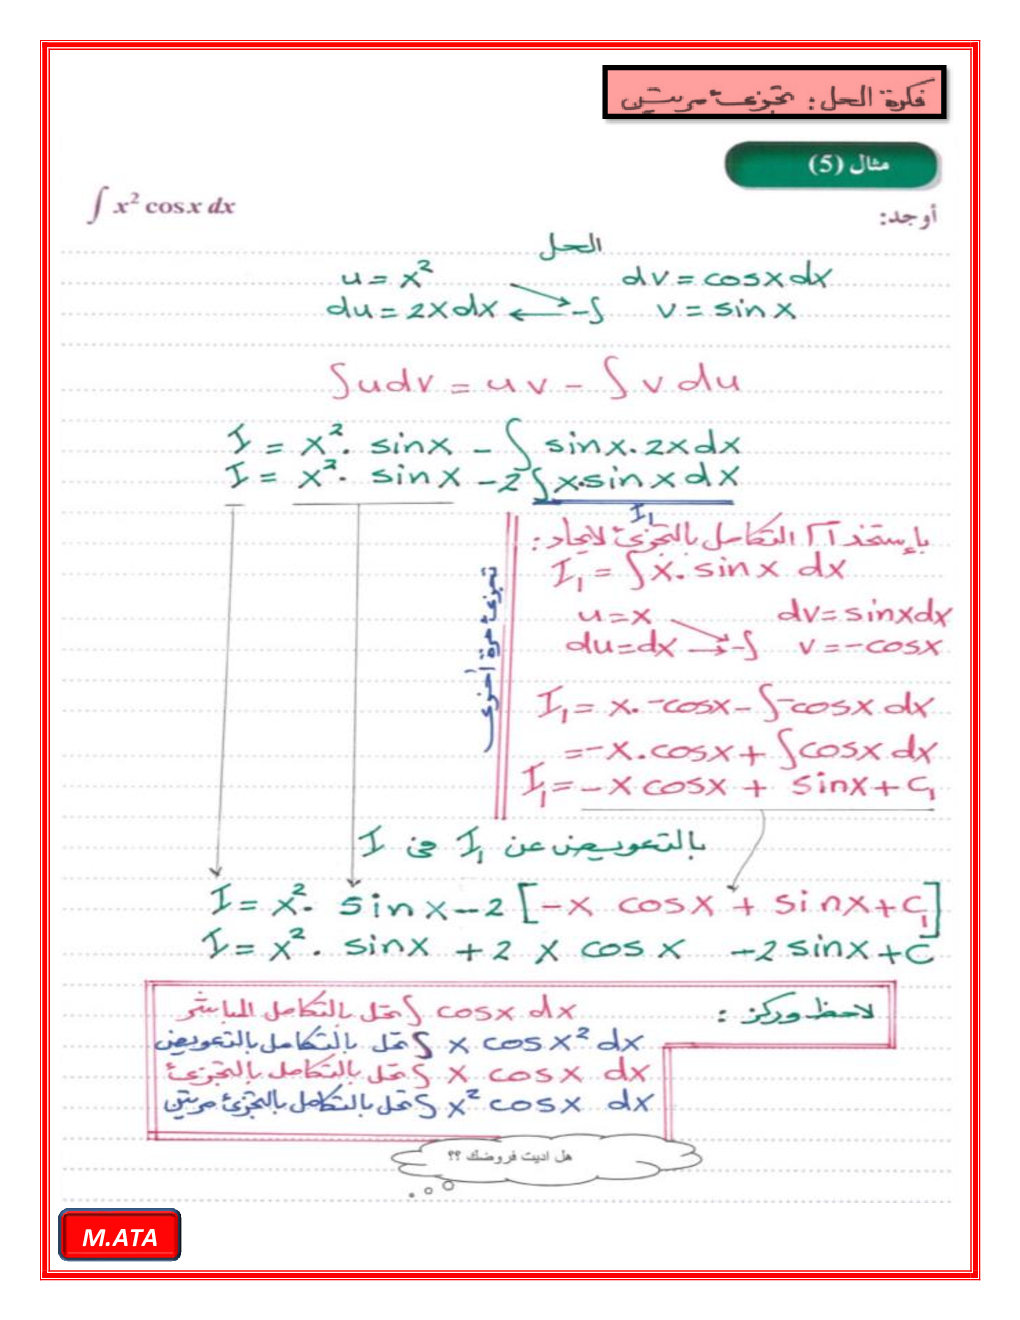 فكرة الحل: تجزيء مرتين
مثال (5)
أوجد:
∫ x² cosx dx
الحل
u = x² dv = cosx dx
du = 2x dx -∫ v = sin x
∫udv = uv - ∫v du
I = x². sinx - ∫ sinx. 2x dx
I = x². sinx - 2 ∫x.sinx dx
I₁
بإستخدام التكامل بالتجزئ لايجاد:
I₁ = ∫x. sin x dx
تجزئة مرة أخرى
u=x dv=sinxdx
du=dx -∫ v=-cosx
I₁ = x. -cosx - ∫-cosx dx
=-x.cosx + ∫cosx dx
I₁ = -x cosx + sinx + c₁
بالتعويض عن I₁ في I
I = x². sinx - 2 [-x cosx + sinx + c₁]
I = x². sinx + 2 x cos x -2 sinx + c
لاحظ وركز :
∫ cosx dx تحل بالتكامل المباشر
∫ x cos x² dx تحل بالتكامل بالتعويض
∫ x cosx dx تحل بالتكامل بالتجزئ
∫ x² cosx dx تحل بالتكامل بالتجزئ مرتين
هل اديت فروضك ؟؟
M.ATA